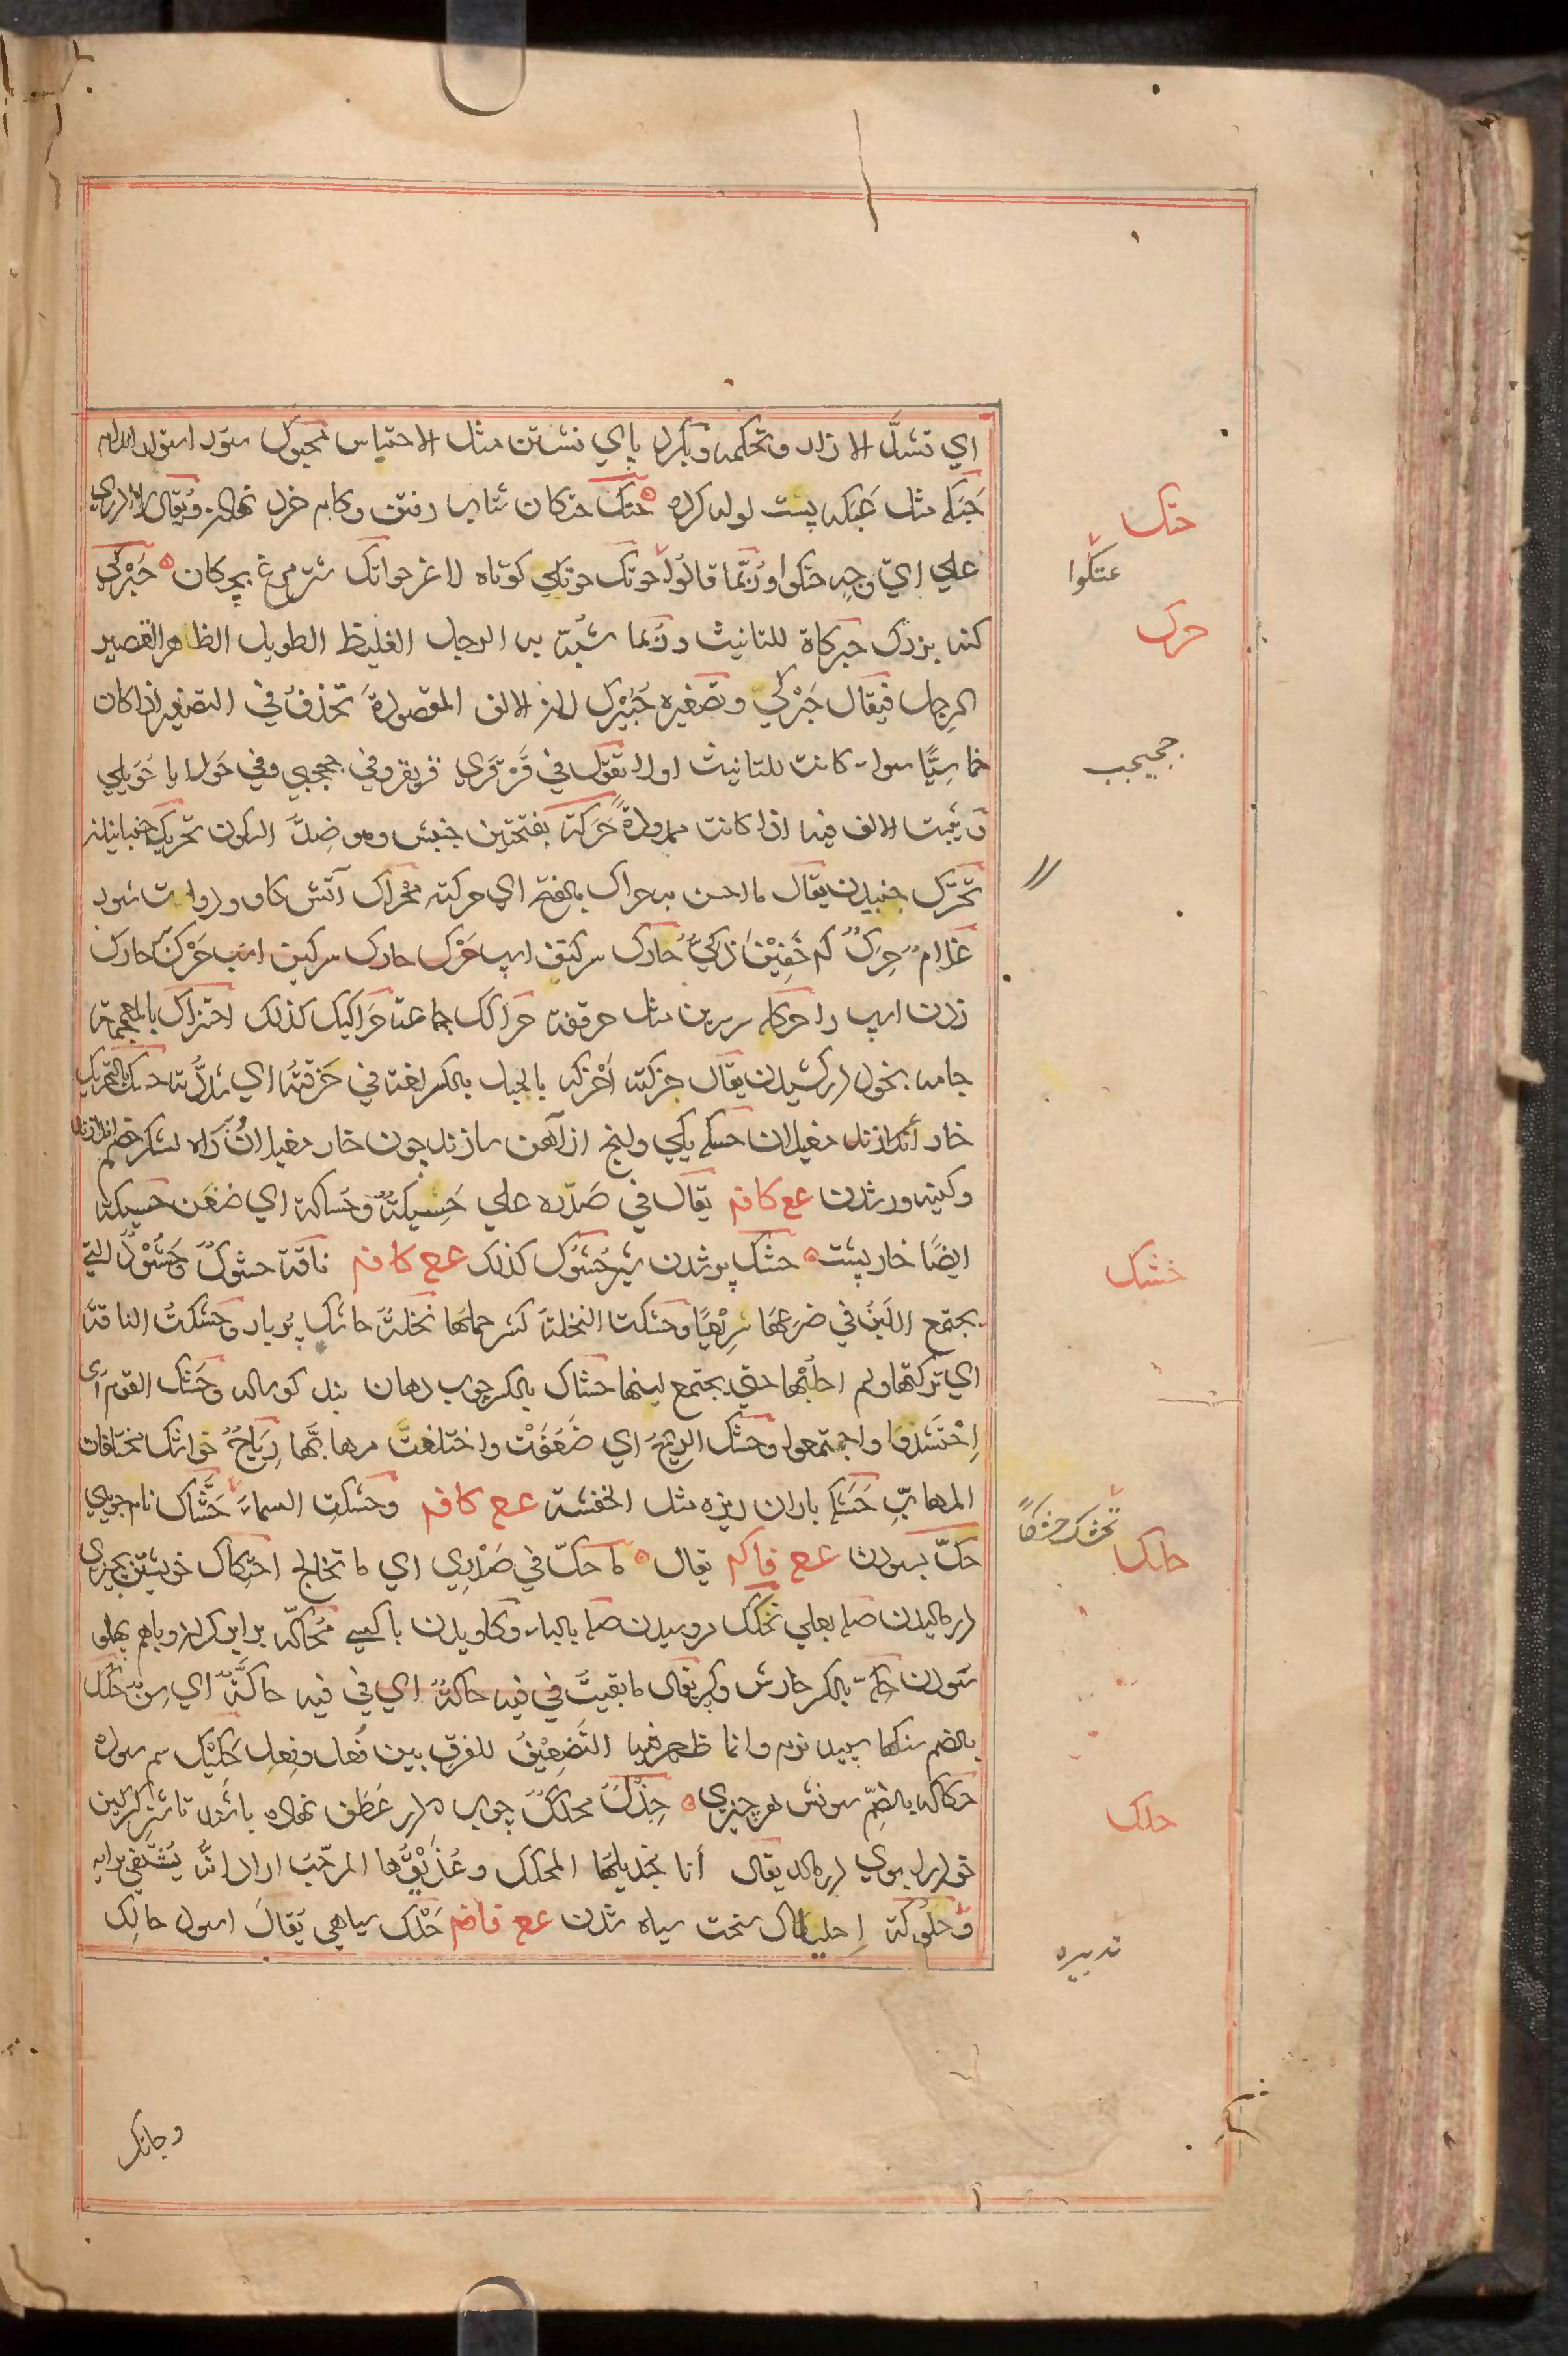 اي تشدّ الازار وتحكمه وبكرد پاي نشستن مثل الاحتباس محبوك ستور استوار اندام
حَبَكه مثل عَبَكه پست لوله كرده حتك حتكان شتاب رفتن وكام خرد نهادن ويقال لا ادري
علي ايّ وجهٍ حتكوا وربّما قالوا حوتك حوتكي كوتاه لاغر حواتك شترمرغ بچكان حَبْركي
كنه بزرك حبركاة للتانيث وربّما شبّه به الرجل الغليظ الطويل الظاهر القصير
الرجل فيقال حَبَرْكيّ وتصغيره حُبَيْرك لان الالف المقصورة تحذف في التصغير اذا كان
خماسيًّا سواء كانت للتانيث اولا تقول في قَرْقَري قريقر وفي جحجبي وفي حولايا حُويلي
وتثبت الالف فيه اذا كانت ممدودة حَرَكة بفتحتين جنبش وهو ضدّ السكون تحريك جنبانيدن
تحرّك جنبيدن يقال ما احسن به حراك بالفتح اي حركة محراك آتش كاو ودوات شور
غلامٌ حَرِكٌ اي خَفِيْف ذكيٌّ حارك سركتف اسپ حَرْك حارك سركين اسب حَرْك حارك
زدن اسپ را حركله سرين مثل حرقفة حراكك جماعة حَراكيك كذلك احتزاك بالمعجمة
جامه بخود دركشيدن يقال حزكته احْزكه بالحبل بالكسر لغة في حَزقته اي شدّته حسك بالتحريك
خار اندازند مغيلان حسكه يكي وانچ از آهن سازند چون خار مغيلان وراه لشكر خصم اندازند
وكينه ور شدن عع كافم يقال في صَدْره علي حَسِيكةٌ وحُساكة اي ضغن حسيكة
ايضًا خارپشت حشك پر شدن شير حُشوك كذلك عع كافم ناقة حشوكٌ وحَشُوْدٌ التي
يجتمع اللبن في ضرعها سريعًا وحشكت النخلة كثر حملها نخلة حاشك پربار وحشكت الناقة
اي تركتها ولم احلبْها حتي يجتمع لبنها حشاك بالكسر چوب دهان بند كوساله وحَشَك القوم اي
اِحْتَشَدُوا واجتمعوا وحشك الريح اي ضَعُفَتْ واختلفتْ مهابّها رياحٌ حواشك مختلفات
المهابّ حَشَكه باران ريزه مثل الحفشة عع كافم وحشكتِ السماء حَشّاك نام جويي
حكّ سودن عع فاكم يقال ما حكّ في صَدْري اي ما تخالج احتكاك خويشتن بچيزي
درماليدن صله بعلي تحكّك دوسيدن صله بالباء وكاويدن با كسي مُحاكّة برابر كردن وباهم پهلو
سودن حكّه بالكسر خارش وكر يقال ما بقيتْ في فيه حاكّة اي في فيه حاكّة اي سِنّ حُكك
بالضم سنكها سپيد نرم وانما ظهر فيه التَضعِيْف للفرق بين فُعل وفِعلٍ حَكيْك سم سوده
حكاكه بالضّم سونش هر چيزي جِذْلٌ محكّكٌ چوب كه در عَطَن نهاده باشند تا شتر كركين
خود را بوي درمالد يقال أنا جُذيلُها المحكّك وعُذَيْقُها المرجّب اراد انّهُ يُشتَفي برايه
وحلوكة اِحليلاك سخت سياه شدن عع فافم حَلَك سياهي يقال اسود حالك
وحانك
حتك
عتكوا
حرك
جحيجب
خشك
تحشك حشكاً
حكك
حلك
تدبيره